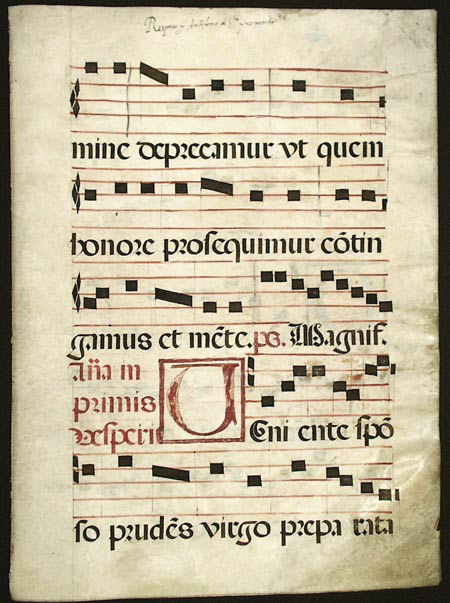 mine deprecamur vt quem
honore prosequimur cõtin
gamus et mẽte. ps. Magnif.
Aña in
primis
vesperis
V
Eni ente spõ
so prudẽs virgo prepa rata